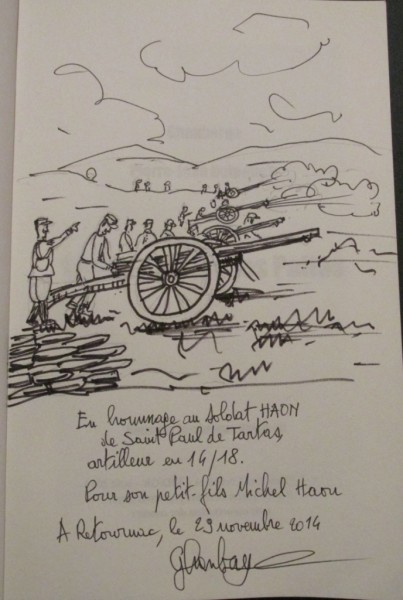 En hommage au soldat HAON
de Saint Paul de Tartas,
artilleur en 14/18.
Pour son petit-fils Michel Haon
A Retournac, le 29 novembre 2014